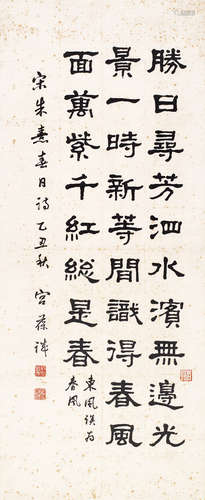 勝日尋芳泗水濱無邊光
景一時新等閒識得春風
面萬紫千紅総是春
東風誤為
春風
宋朱熹春日詩乙丑秋宮葆諴